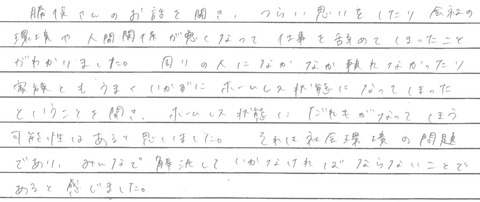 勝俣さんのお話を聞き、つらい思いをしたり会社の
環境や人間関係が悪くなって仕事を辞めてしまったこと
がわかりました。周りの人になかなか頼れなかったり
家族ともうまくいかずにホームレス状態になってしまった
ということを聞き、ホームレス状態にだれもがなってしまう
可能性はあると思いました。それは社会環境の問題
であり、みんなで解決していかなければならないことで
あると感じました。